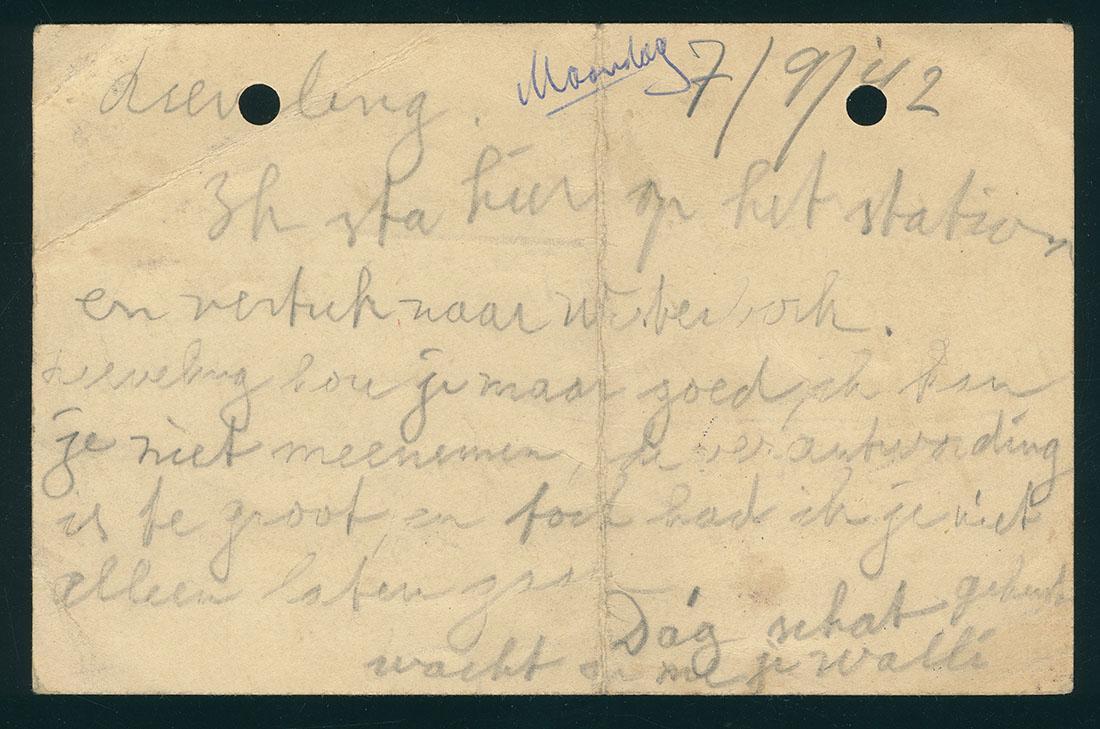 Lieveling. Maandag 7/9/'42
Ik sta hier op het station
en vertrek naar Westerbork.
Lieveling hou je maar goed, ik kan
je niet meenemen, de verantwording
is te groot, en toch had ik je niet
alleen laten
Dag schat gekust
wacht op me je Walli